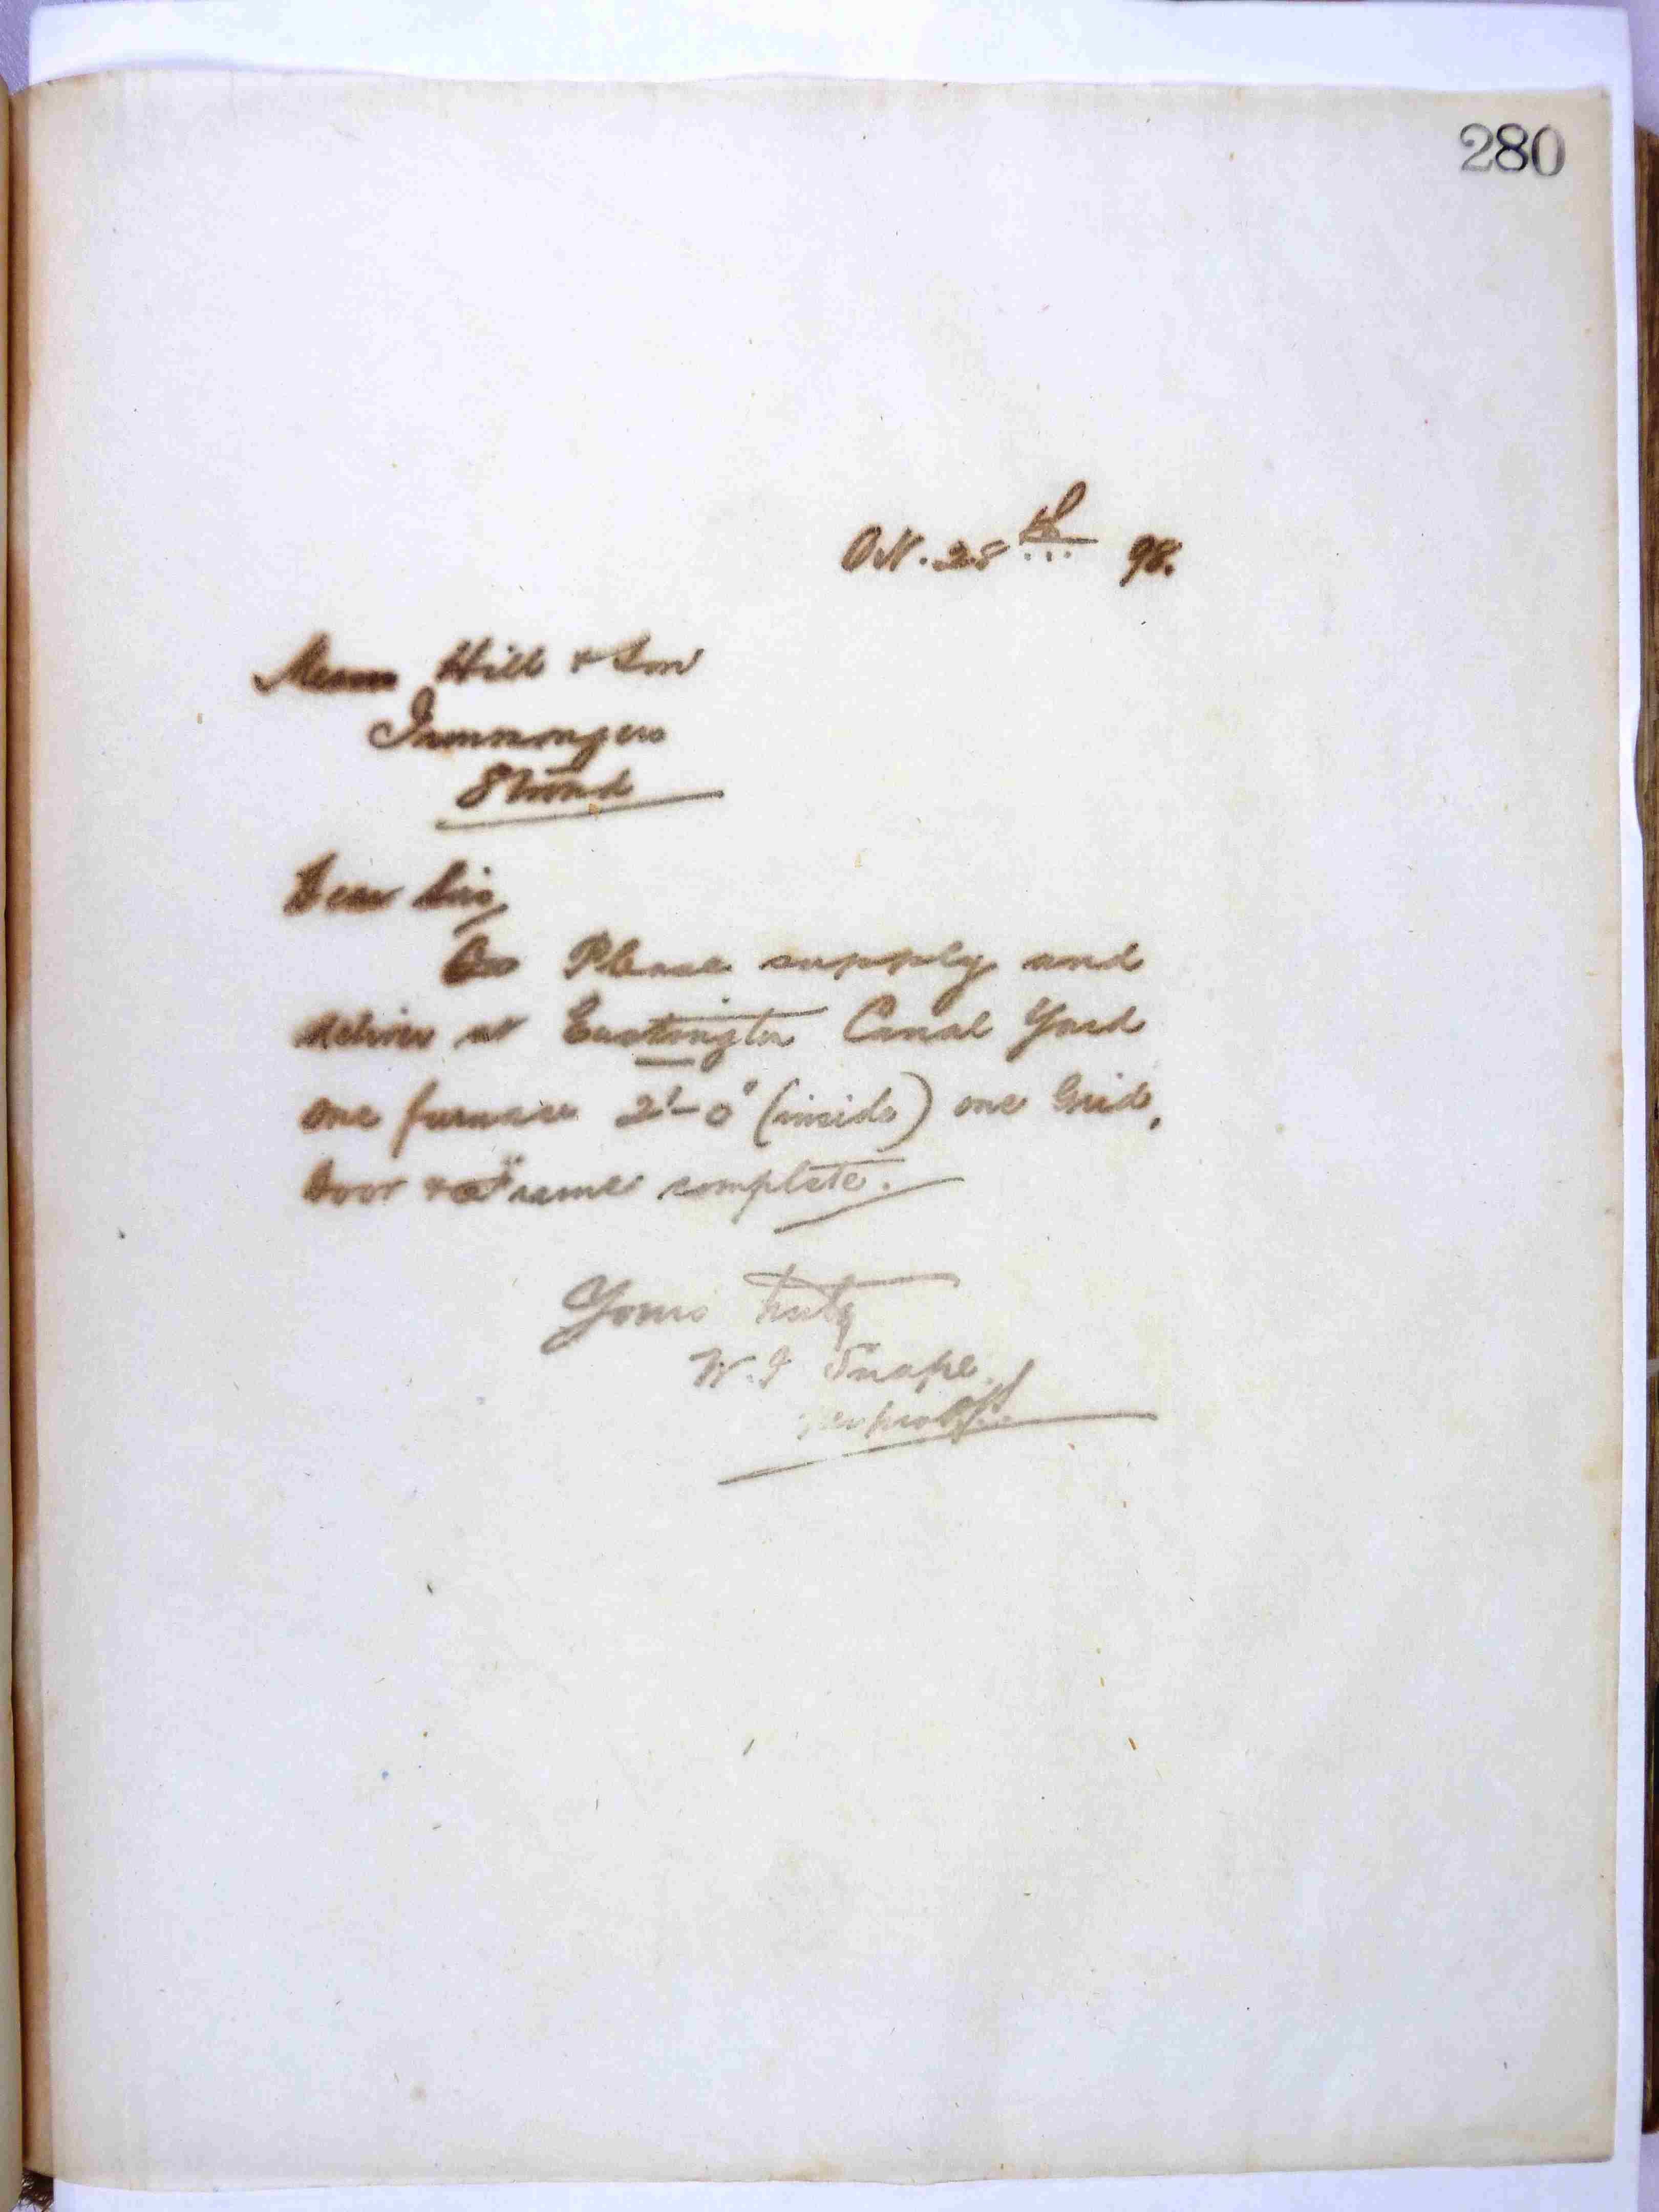 280
Oct. 28th 98.
Messrs Hill & Son
Ironmongers
Stroud
Dear Sir,
Please supply and
deliver at Eastington Canal Yard
one furnace 2'-0" (inside) one Grid,
door & frame complete.
Yours truly
W. J Snape